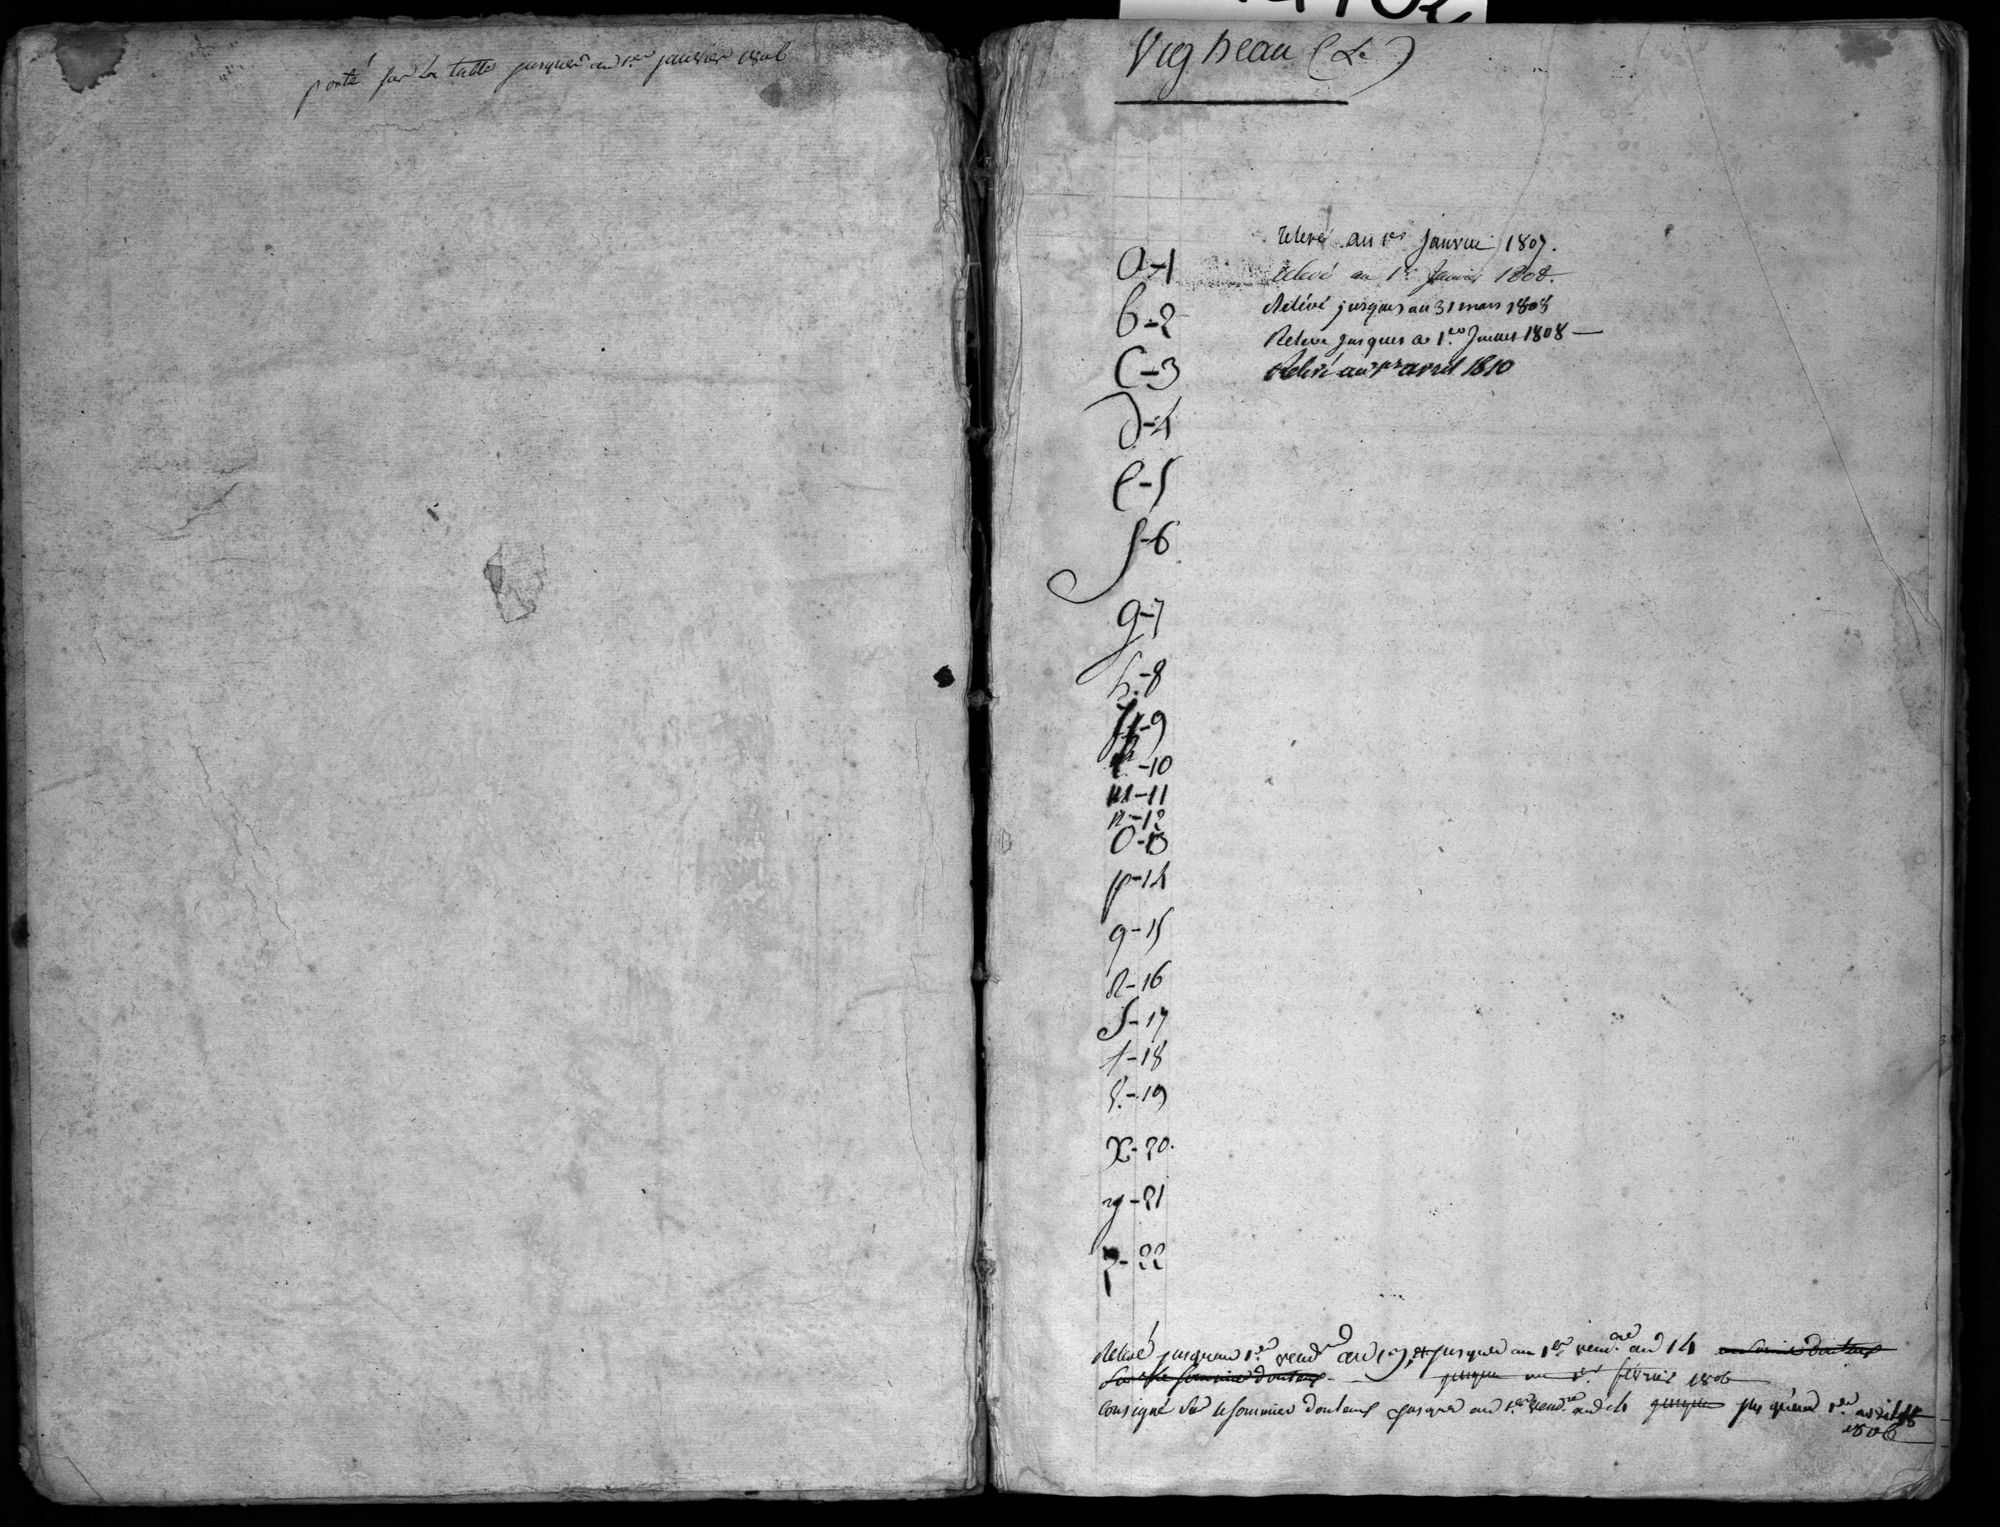 porté sur La table jusques au 1.er janvier 1806
Vigneau (Le)
relevé au 1er Janvier 1807.
relevé au 1er Janvier 1808.
Relévé jusques au 31 mars 1808
Relevé jusques au 1.er Juillet 1808 —
Relevé au 1er avril 1810
a-1
b-2
C-3
d-4
e-5
f-6
g-7
h-8
-9
l-10
m-11
n-12
O-13
p-14
q-15
R-16
S-17
t-18
-19
X-20.
y-21
z-22
Relevé jusquau 1.er vendre an 13, et jusques au 1er vend.re an 14
sur le sommier douteux jusques au 1er février 1806
Consigné sur le sommier douteux jusques au 1.er vend.re an 14 jusques jusqu'au 1er avril
1806